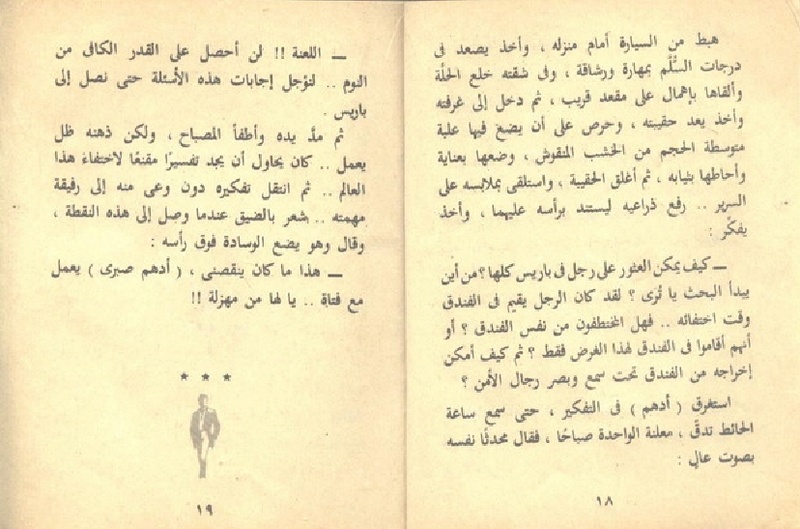 هبط من السيارة أمام منزله ، وأخذ يصعد فى
درجات السُّلَّم بمهارة ورشاقة ، وفى شقته خلع الحلَّة
وألقاها بإهمال على مقعد قريب ، ثم دخل إلى غرفته
وأخذ يعد حقيبته ، وحرص على أن يضع فيها علبة
متوسطة الحجم من الخشب المنقوش ، وضعها بعناية
وأحاطها بثيابه ، ثم أغلق الحقيبة ، واستلقى بملابسه على
السرير .. رفع ذراعيه ليستند برأسه عليهما ، وأخذ
يفكِّر :
ــ كيف يمكن العثور على رجل فى باريس كلها ؟ من أين
يبدأ البحث يا تُرَى ؟ لقد كان الرجل يقيم فى الفندق
وقت اختفائه .. فهل المختطفون من نفس الفندق ؟ أو
أنهم أقاموا فى الفندق لهذا الغرض فقط ؟ ثم كيف أمكن
إخراجه من الفندق تحت سمع وبصر رجال الأمن ؟
استغرق ( أدهم ) فى التفكير ، حتى سمع ساعة
الحائط تدقّ ، معلنة الواحدة صباحًا ، فقال محدثًا نفسه
بصوت عالٍ :
١٨
ــ اللعنة !! لن أحصل على القدر الكافى من
النوم .. لنؤجل إجابات هذه الأسئلة حتى نصل إلى
باريس .
ثم مدَّ يده وأطفأ المصباح ، ولكن ذهنه ظل
يعمل .. كان يحاول أن يجد تفسيرًا مقنعًا لاختفاء هذا
العالم .. ثم انتقل تفكيره دون وعى منه إلى رفيقة
مهمته .. شعر بالضيق عندما وصل إلى هذه النقطة ،
وقال وهو يضع الوسادة فوق رأسه :
ــ هذا ما كان ينقصنى ، ( أدهم صبرى ) يعمل
مع فتاة .. يا لها من مهزلة !!
★ ★ ★
١٩